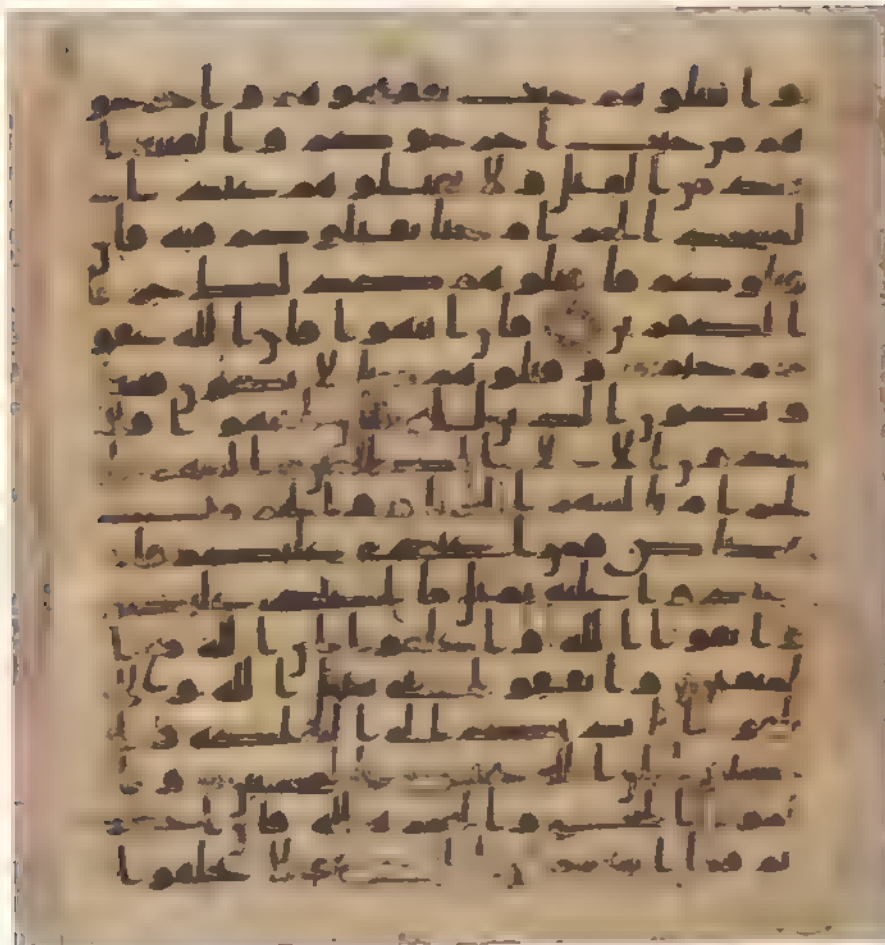 واقتلوهم حيث ثقفتموهم واخرجو
هم من حيث اخرجوكم والفتنة ا
شد من القتل ولا تقتلوهم عند ا
لمسجد الحرام حتى يقتلوكم فيه فان
قتلوكم فاقتلوهم كذلك جزا
الكفرين فان انتهوا فان الله غفو
ر رحيم وقتلوهم حتى لا تكون فتنة
ويكون الدين لله فان انتهوا فلا
عدون الا على الظلمين الشهر ا
لحرام بالشهر الحرام والحرمت
قصاص فمن اعتدى عليكم فا
عتدوا عليه بمثل ما اعتدى عليكم
واتقوا الله واعلموا ان الله مع ا
لمتقين وانفقوا في سبيل الله ولا
تلقوا بايديكم الى التهلكة وا
حسنوا ان الله يحب المحسنين وا
تموا الحج والعمرة لله فان احصر
تم فما استيسر من الهدى ولا تحلقوا